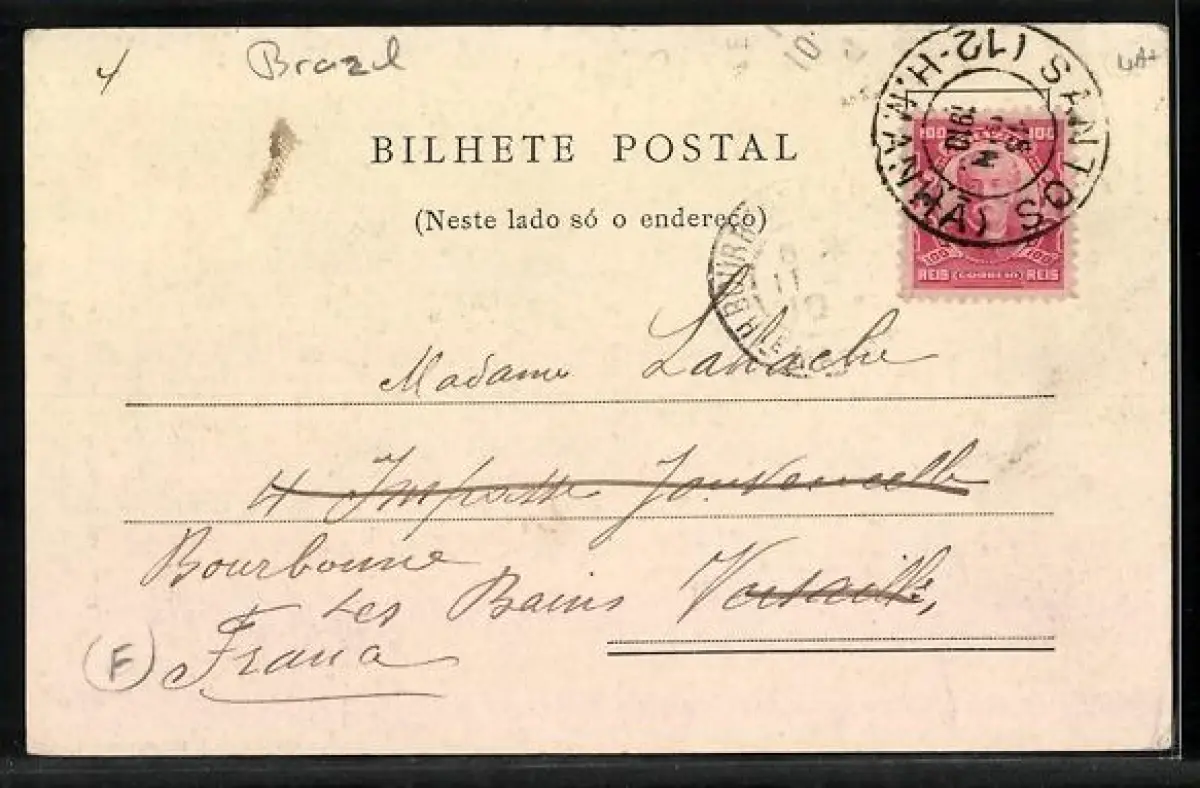 4 Brazil
BILHETE POSTAL
(Neste lado só o endereço)
SANTOS (12-H.MANHÃ)
1910
100 100
100 100
REIS (CORREIO) REIS
Madame
4 Impasse Jouvencelle
Bourbonne
Les Bains Versailles,
(F) France